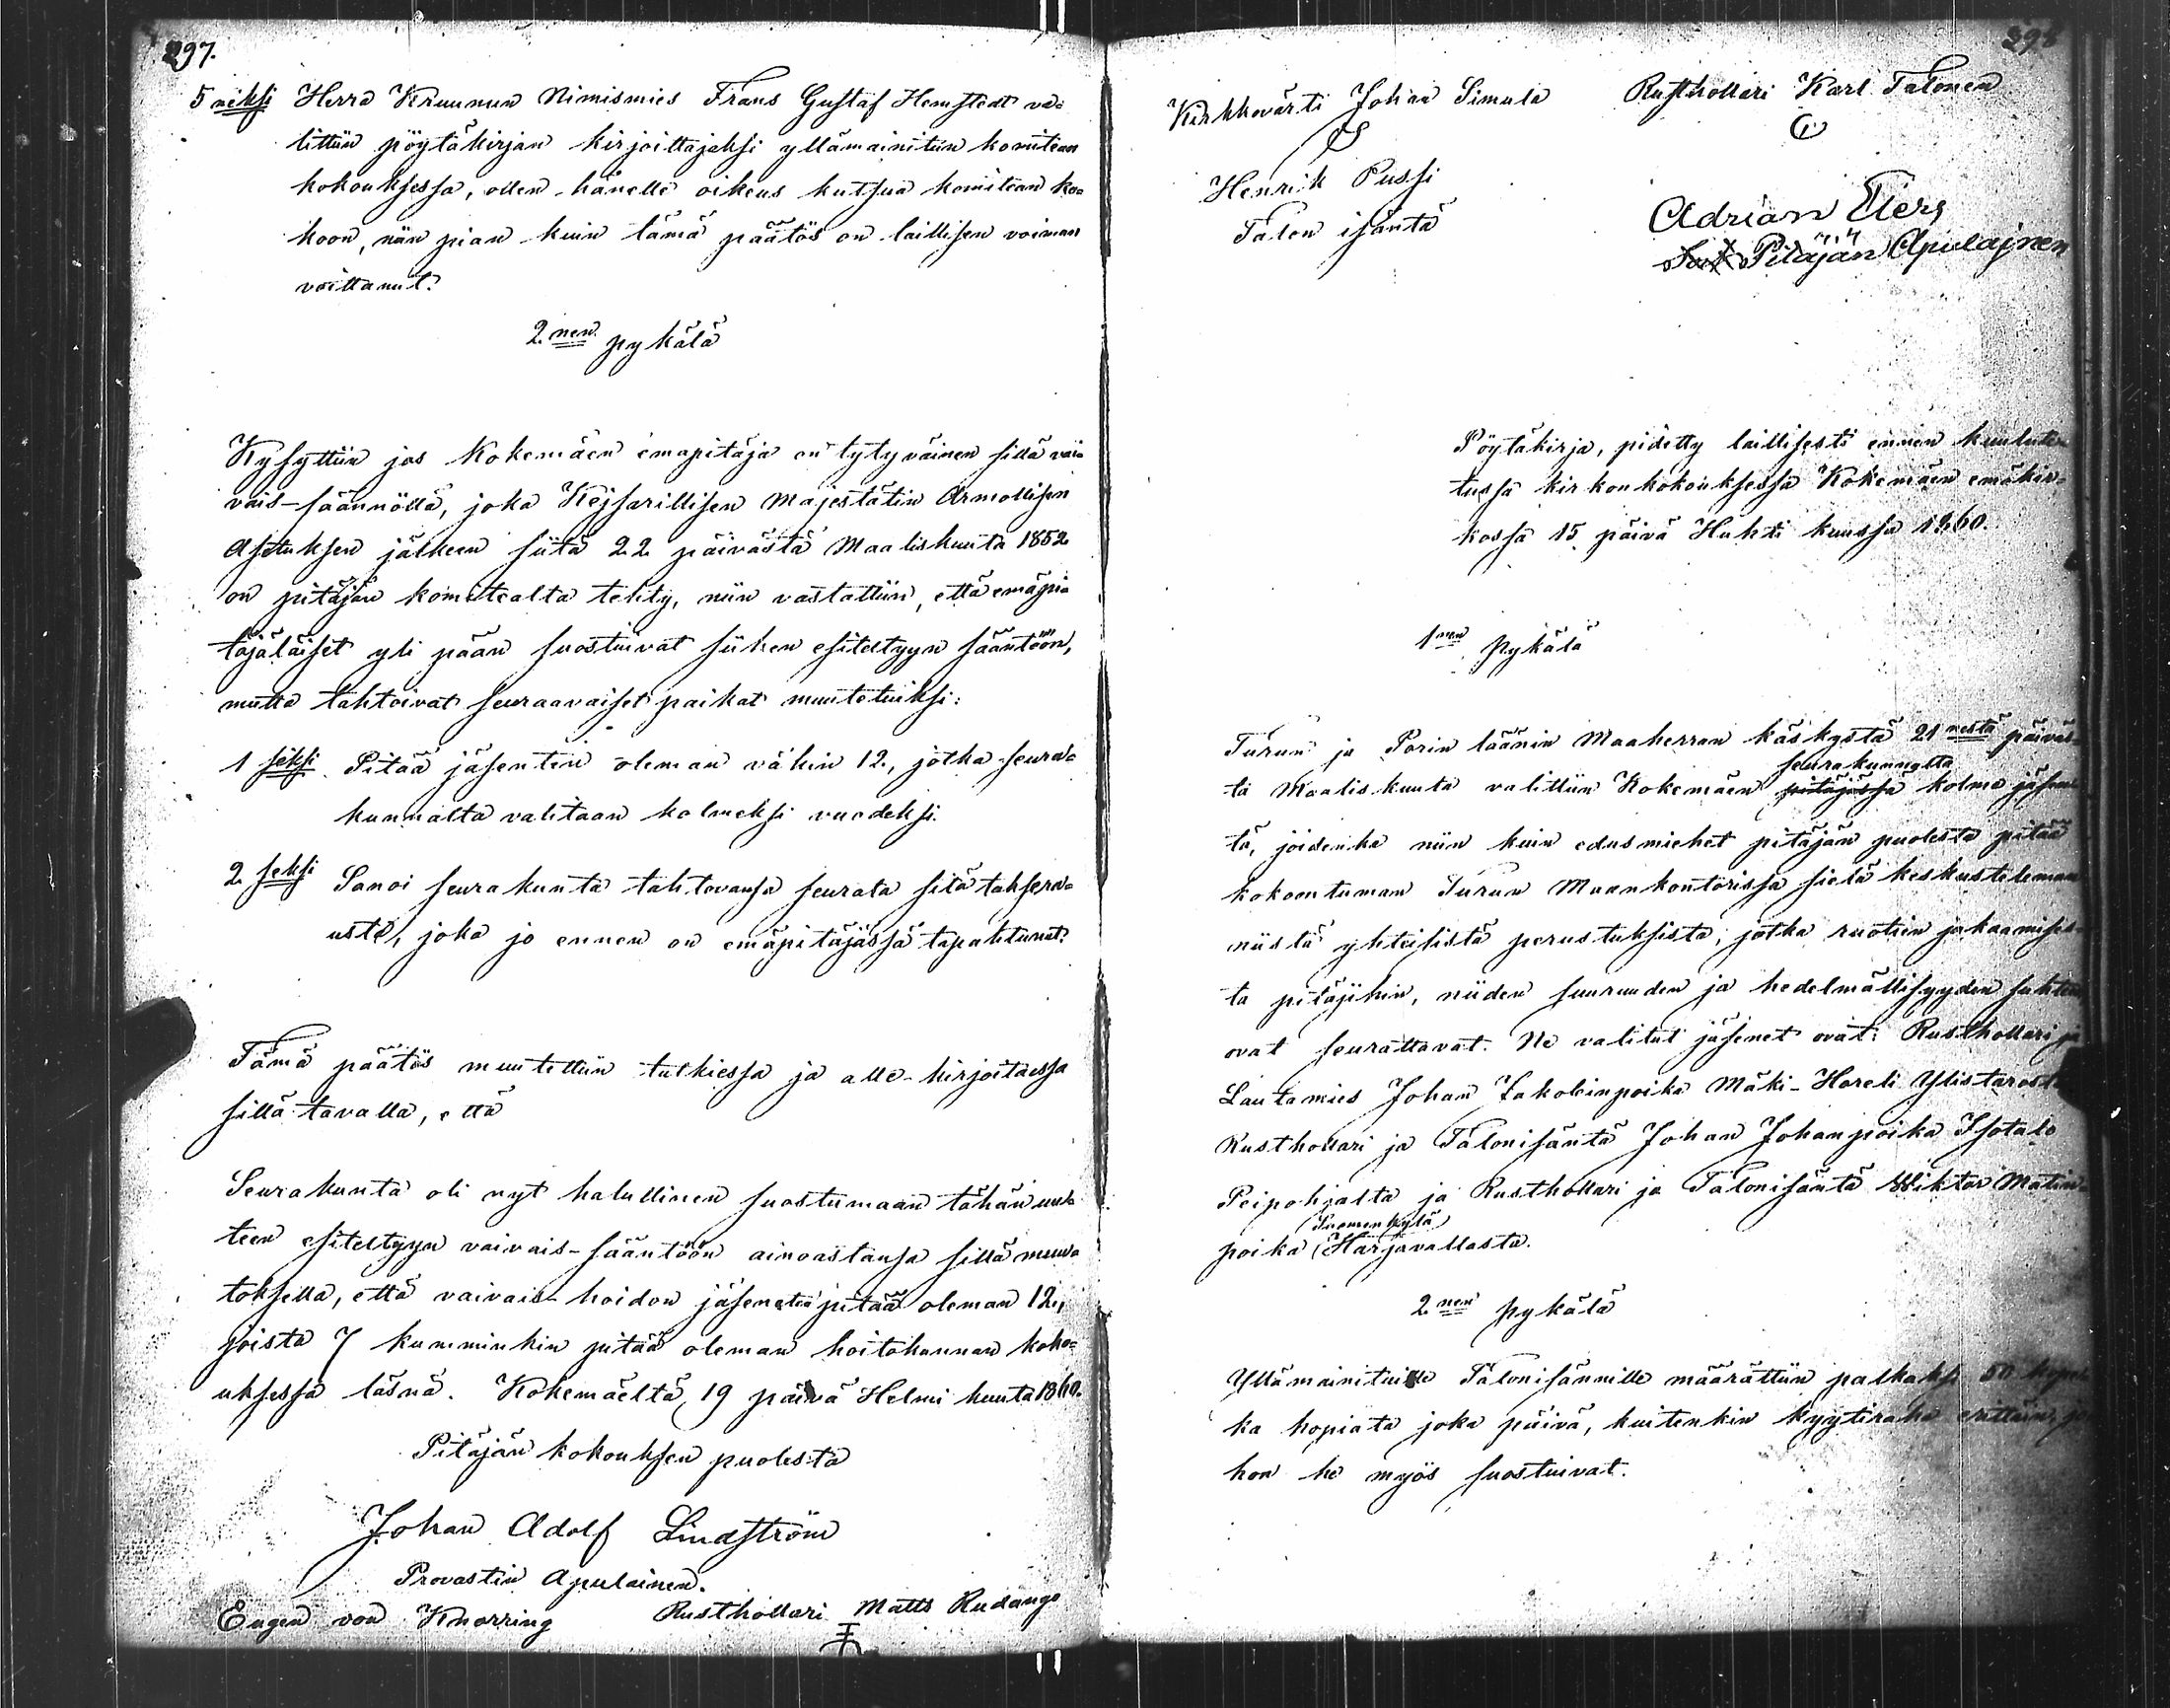 297.
5 neksi Herra Kruunun Nimismies Frans Gustaf Hemstedt va=
littiin pöytäkirjan kirjoittajaksi yllämainitun komitean
kokouksessa, ollen hänelle oikeus kutsua komitean ko=
koon, niin pian kuin tämä päätös on laillisen voiman
voittanut.
2. nen pykälä
Kysyttiin jos Kokemäen emäpitäjä on tytyväinen sillä vai=
vais-säännöllä, joka Kejsarillisen Majestätin Armollisen
Asetuksen jälkeen siitä 22 päivästä Maaliskuuta 1852
on pitäjän komitealta tehty, niin vastattiin, että emäpi=
täjäläiset yli pään suostuivat siihen esiteltyyn sääntöön,
mutta tahtoivat seuraavaiset paikat muutetuiksi:
1 seksi Pitää jäsenten oleman vähin 12, jotka seura=
kunnalta valitaan kolmeksi vuodeksi.
2 seksi Sanoi seurakunta tahtovansa seurata sitä taksera=
usta, joka jo ennen on emäpitäjässä tapahtunut.
Tämä päätös muutettiin tutkiessa ja alle-kirjoitaessa
sillä tavalla, että
Seurakunta oli nyt halullinen suostumaan tähän uu=
teen esiteltyyn vaivais-sääntöön ainoastansa sillä muu=
toksella, että vaivais-hoidon jäseneitä pitää oleman 12,
joista 7 kumminkin pitää oleman hoitokunnan koko=
uksessa läsnä. Kokemäeltä, 19 päivä Helmi kuuta 1860.
Pitäjän kokouksen puolesta
Johan Adolf Lindström
Provastin Apulainen.
Eugen von Knorring Rusthollari Matts Rudango
298
Kirkkovärti Johan Simula Rusthollari Karl Talonen
Henrik Pussi
Talon isäntä
Adrian Elers
Pitäjän Apulajnen
Pöytäkirja, pidetty laillisesti ennen kuulute=
tussa kirkonkokouksessa Kokemäen emäkir=
kossa 15 päivä Huhti kuussa 1860.
1 nen pykälä
Turun ja Porin läänin Maaherran käskystä 21 nestä päiväs=
seurakunnalta
tä Maalis kuuta valittiin Kokemäen pitäjässä kolme jäsen=
tä, joidenka niin kuin edusmiehet pitäjän puolesta pitää
kokoontuman Turun Maankontorissa sielä keskusteleman
niistä yhteisistä perustuksista, jotka ruotien jakaamises=
ta pitäjihin, niiden suuruuden ja hedelmällisyyden suhteen
ovat seurattavat. Ne valitut jäsenet ovat: Rusthollari ja
Lautamies Johan Jakobinpoika Mäki-Horeli Ylistarosta
Rusthollari ja Talonisäntä Johan Johanpoika Isotalo
Peipohjalta ja Rusthollari ja Talonisäntä Wiktor Matin=
(Suomenkylä)
poika Harjavallasta.
2 nen pykälä
Yllämainituille Talonisännille määrättiin palkaksi 50 kope
ka hopiata joka päivä, kuitenkin kyytiraha erittäin,
hon he myös suostuivat.